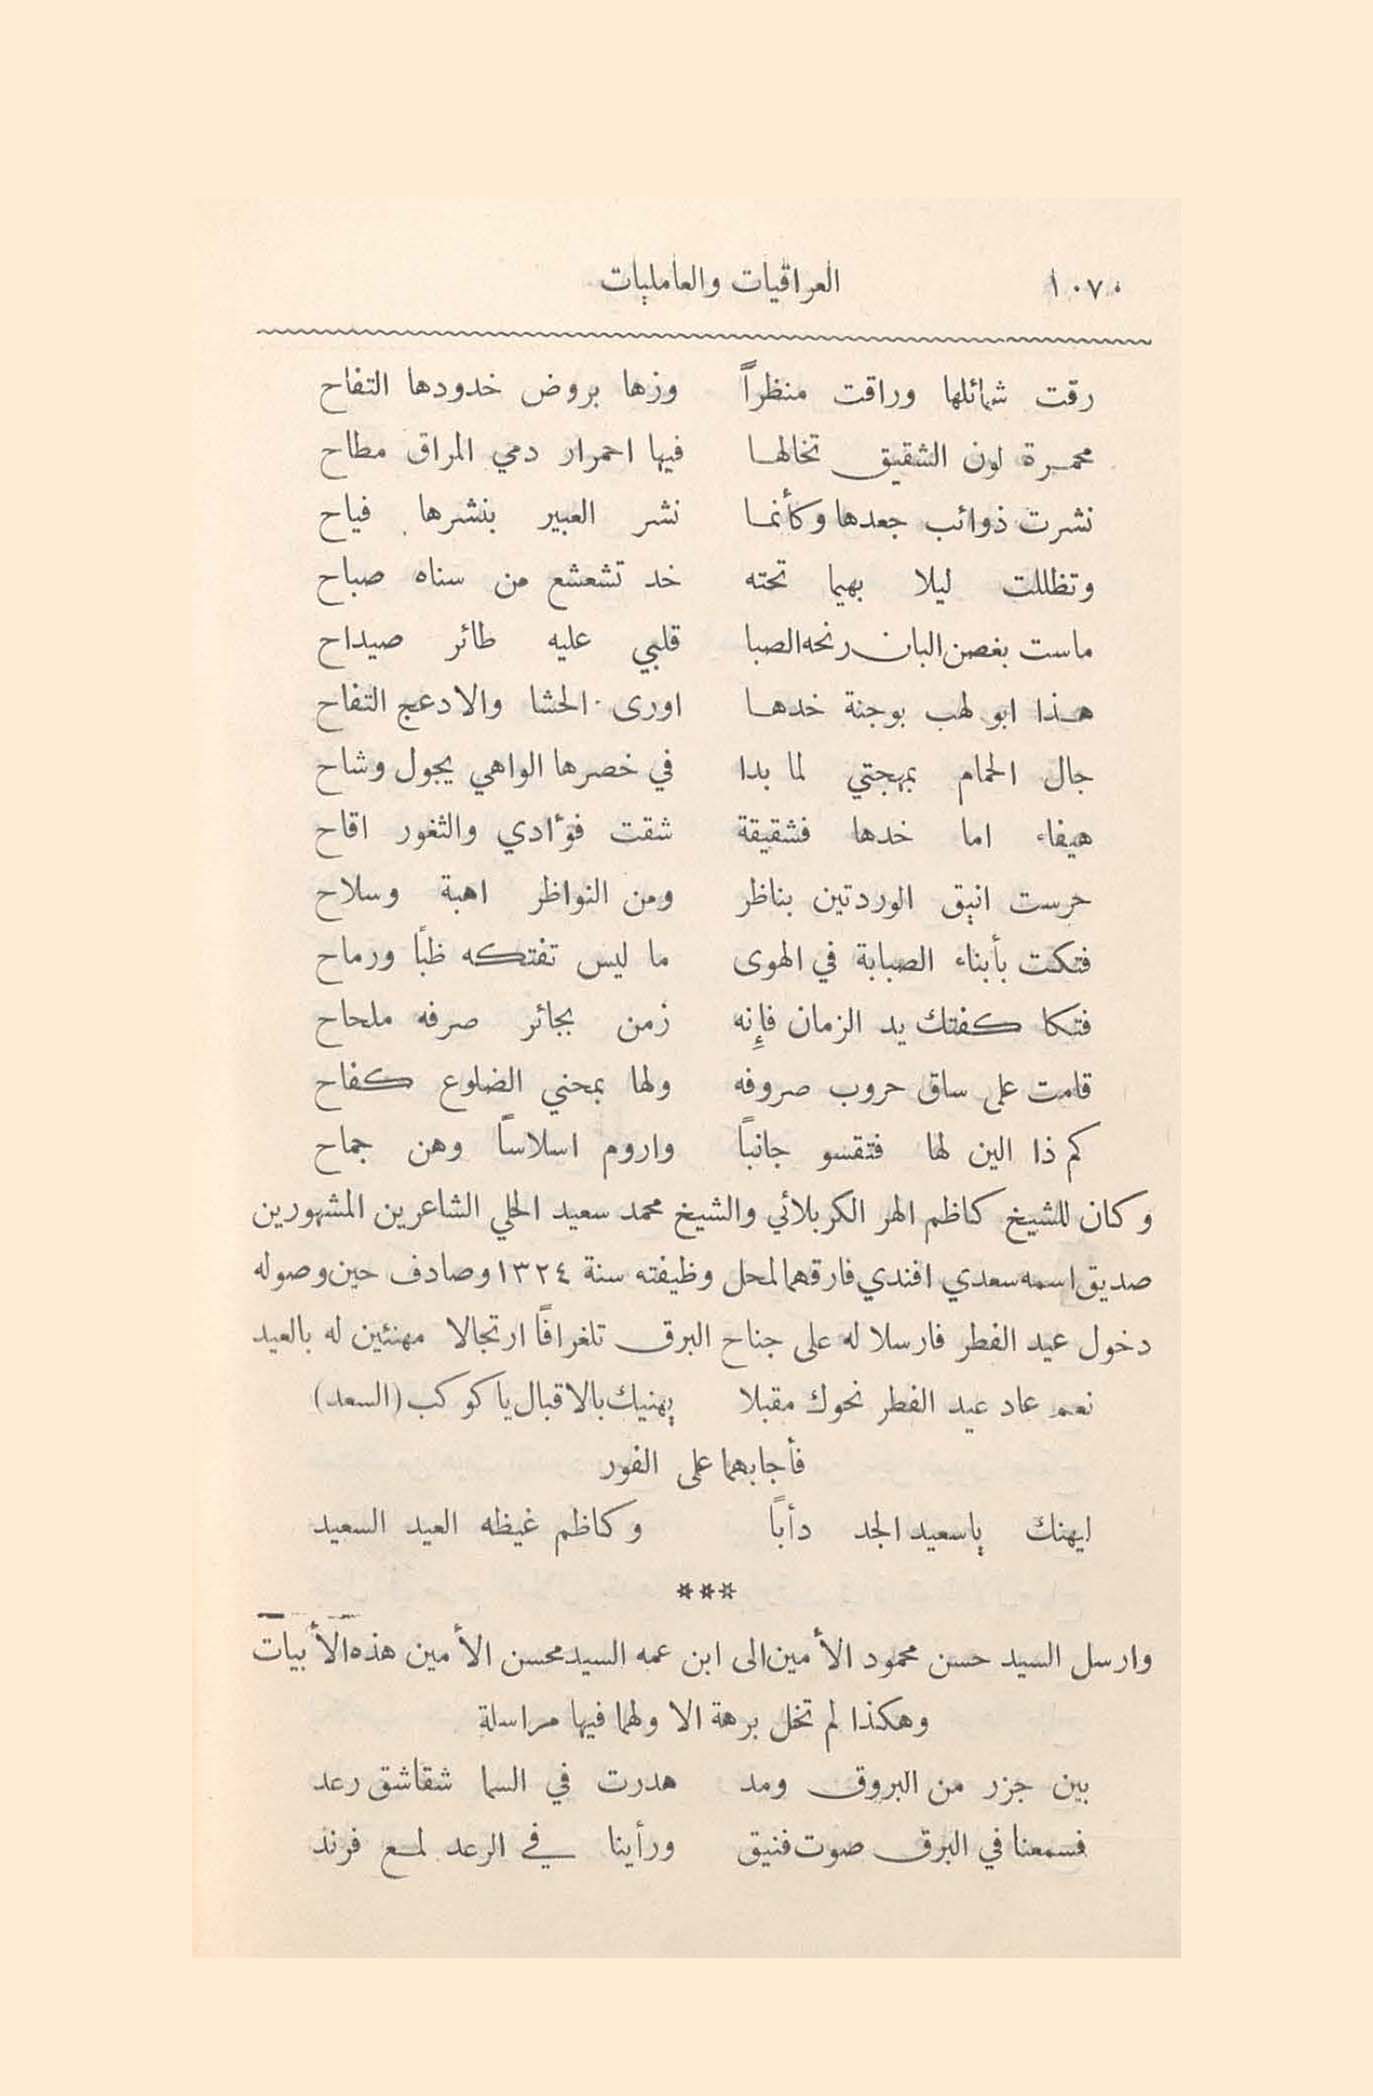 ١٠٧٠ العراقيات والعامليات
رقت شمائلها وراقت منظراً وزها بروض خدودها التفاح
محمرة لون الشقيق تخالها فيها احمرار دمي المراق مطاح
نشرت ذوائب جعدها وكأنما نشر العبير بنشرها فياح
وتظللت ليلا بهيما تحته خد تشعشع من سناه صباح
ماست بغصن البان رنحه الصبا قلبي عليه طائر صيداح
هذا ابو لهب بوجنة خدها اورى الحشا والادعج التفاح
جال الحمام بمهجتي لما بدا في خصرها الواهي يجول وشاح
هيفاء اما خدها فشقيقة شقت فؤادي والثغور اقاح
حرست انيق الوردتين بناظر ومن النواظر اهبة وسلاح
فتكت بأبناء الصبابة في الهوى ما ليس تفتكه ظبًا ورماح
فتكا كفتك يد الزمان فإنه زمن بجائر صرفه ملحاح
قامت على ساق حروب صروفه ولها بمحني الضلوع كفاح
كم ذا الين لها فتقسو جانباً واروم اسلاساً وهن جماح
وكان للشيخ كاظم الهر الكربلائي والشيخ محمد سعيد الحلي الشاعرين المشهورين
صديق اسمه سعدي افندي فارقهما لمحل وظيفته سنة ١٣٢٤ وصادف حين وصوله
دخول عيد الفطر فارسلا له على جناح البرق تلغرافًا ارتجالا مهنئين له بالعيد
نعم عاد عيد الفطر نحوك مقبلا يهنيك بالاقبال يا كوكب (السعد)
فأجابهما على الفور
ايهنك ياسعيد الجد دأباً وكاظم غيظه العيد السعيد
***
وارسل السيد حسن محمود الأمين الى ابن عمه السيد محسن الأمين هذه الأبيات
وهكذا لم تخل برهة الا ولهما فيها مراسلة
بين جزر من البروق ومد هدرت في السما شقاشق رعد
فسمعنا في البرق صوت فنيق ورأينا في الرعد لمع فرند